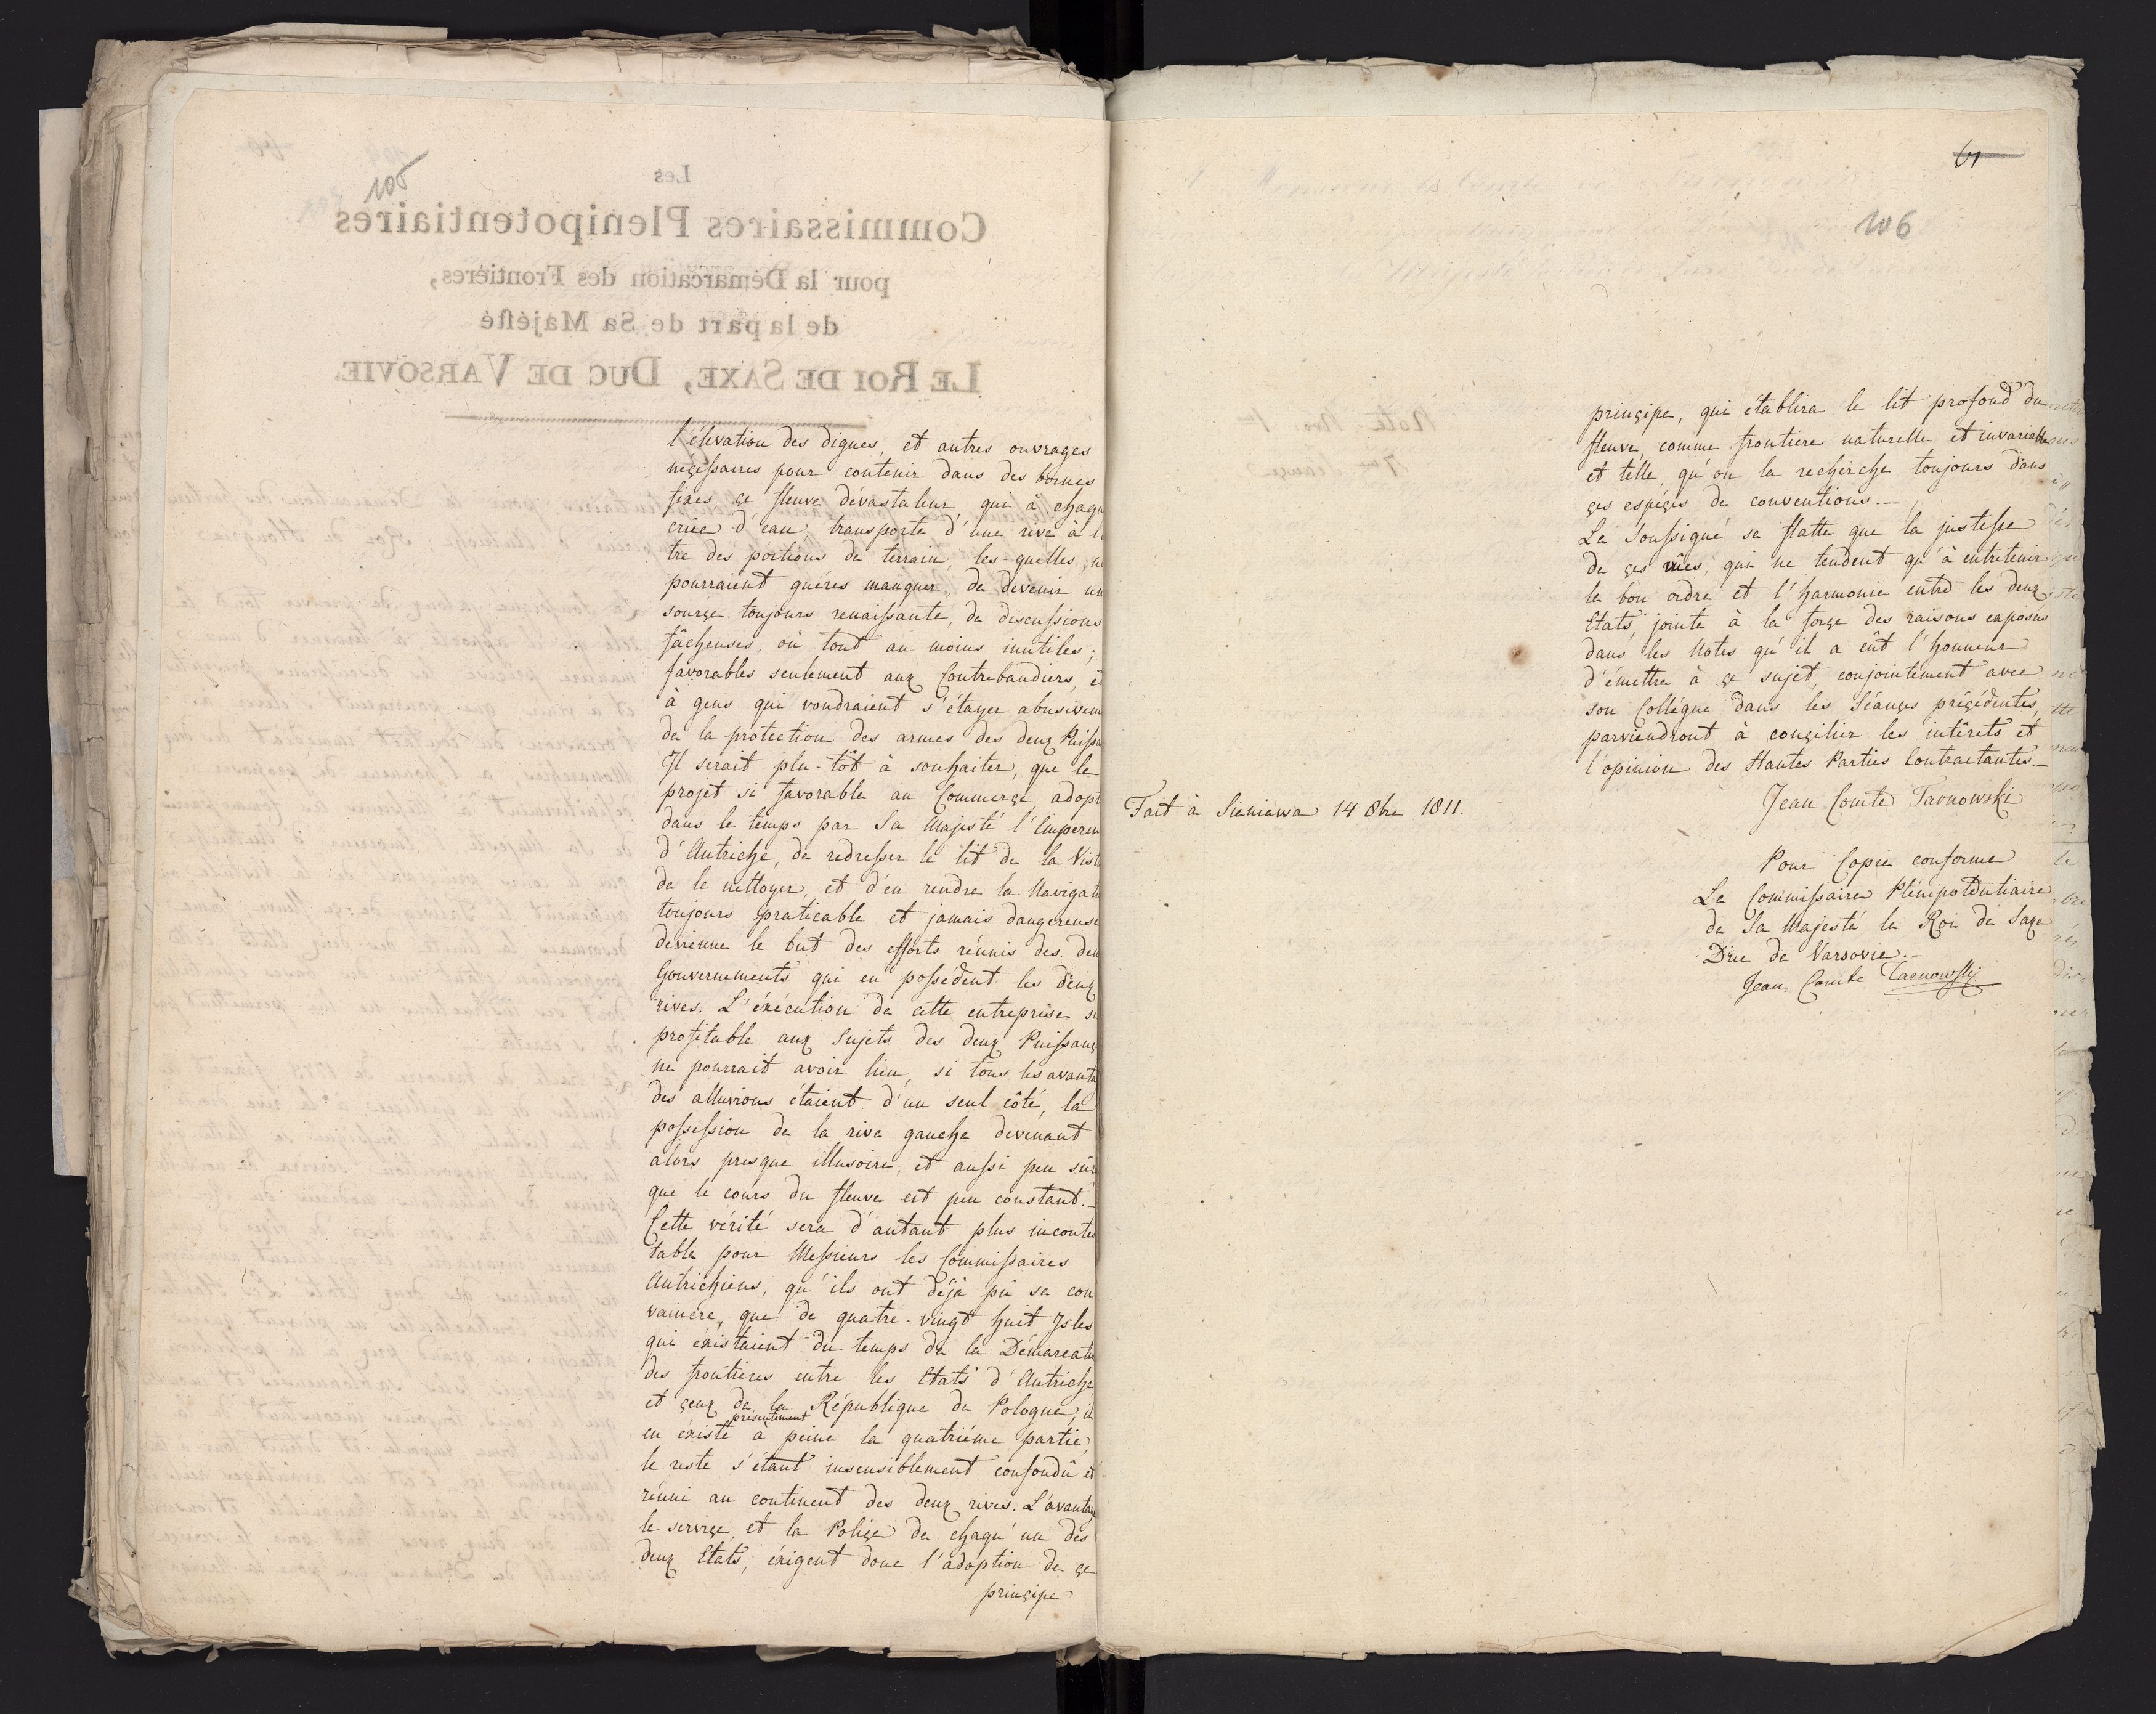 105
l'élévation des digues, et autres ouvrages
neçéssaires pour contenir dans des bornes
fixes çe fleuve dévastateur, qui à chaqu
crüe d'eau transporte d'une rive à l
tre des portions de terrain, les-quelles, n
pourraient guéres manquer, de devenir un
sourçe toujours renaissante, de discussions
fâcheuses, où tout au moins inutiles;
favorables seulement aux Contrebandiers, et
à gens qui voudraient s'étayer abusivem
de la protection des armes des deux Puissa
Il serait plu-tôt à souhaiter, que le
projet si favorable au Commerçe, adopt
dans le temps par Sa Majesté l'Empereu
d'Autriche, de redresser le lit de la Vist
de le nettoyer, et d'en rendre la Navigati
toujours praticable et jamais dangereuse
devienne le but des efforts réunis des deu
Gouvernements qui en possédent les deux
rives. L'éxécution de cette entreprise si
profitable aux Sujets des deux Puissanç
ne pourrait avoir lieu, si tous les avanta
des alluvions étaient d'un seul côté, la
possession de la rive gauche devenant
alors presque illusoire, et aussi peu sûr
que le cours du fleuve est peu constant.-
Cette vérité sera d'autant plus incontes
table pour Messieurs les Commissaires
Autrichiens, qu'ils ont déjà pû se con
vaincre, que de quatre-vingt huit Isles
qui éxistaient du temps de la Démarcatio
des frontières entre les Etats d'Autriche
et çeux de la République de Pologne, il
présentement
en éxiste à peine la quatriéme partie,
le reste s'étant insensiblement confondû et
réuni au continent des deux rives. L'avantag
le serviçe, et la Poliçe de chaqu'un des
deux Etats, éxigent donc l'adoption de çe
prinçipe
61
106
prinçipe, qui établira le lit profond du
fleuve, comme frontiere naturelle et invariable
et telle, qu'on la recherche toujours dans
çes espéçes de conventions.--
Le Soussigné se flatte que la justesse
de çes vûes, qui ne tendent qu'à entretenir
le bon ordre et l'harmonie entre les deux
Etats, jointe à la forçe des raisons exposées
dans les Notes qu'il a eût l'honneur
d'émettre à çe sujet, conjointement avec
son Collégue dans les Séançes préçédentes,
parviendront à conçilier les intêrets et
l'opinion des Hautes Parties Contractantes.-
Jean Comte Tarnowski
Fait à Sieniawa 14 8bre 1811.
Pour Copie conforme
Le Commissaire Plénipotentiaire
de Sa Majesté le Roi de Saxe
Duc de Varsovie.-
Jean Comte Tarnowski